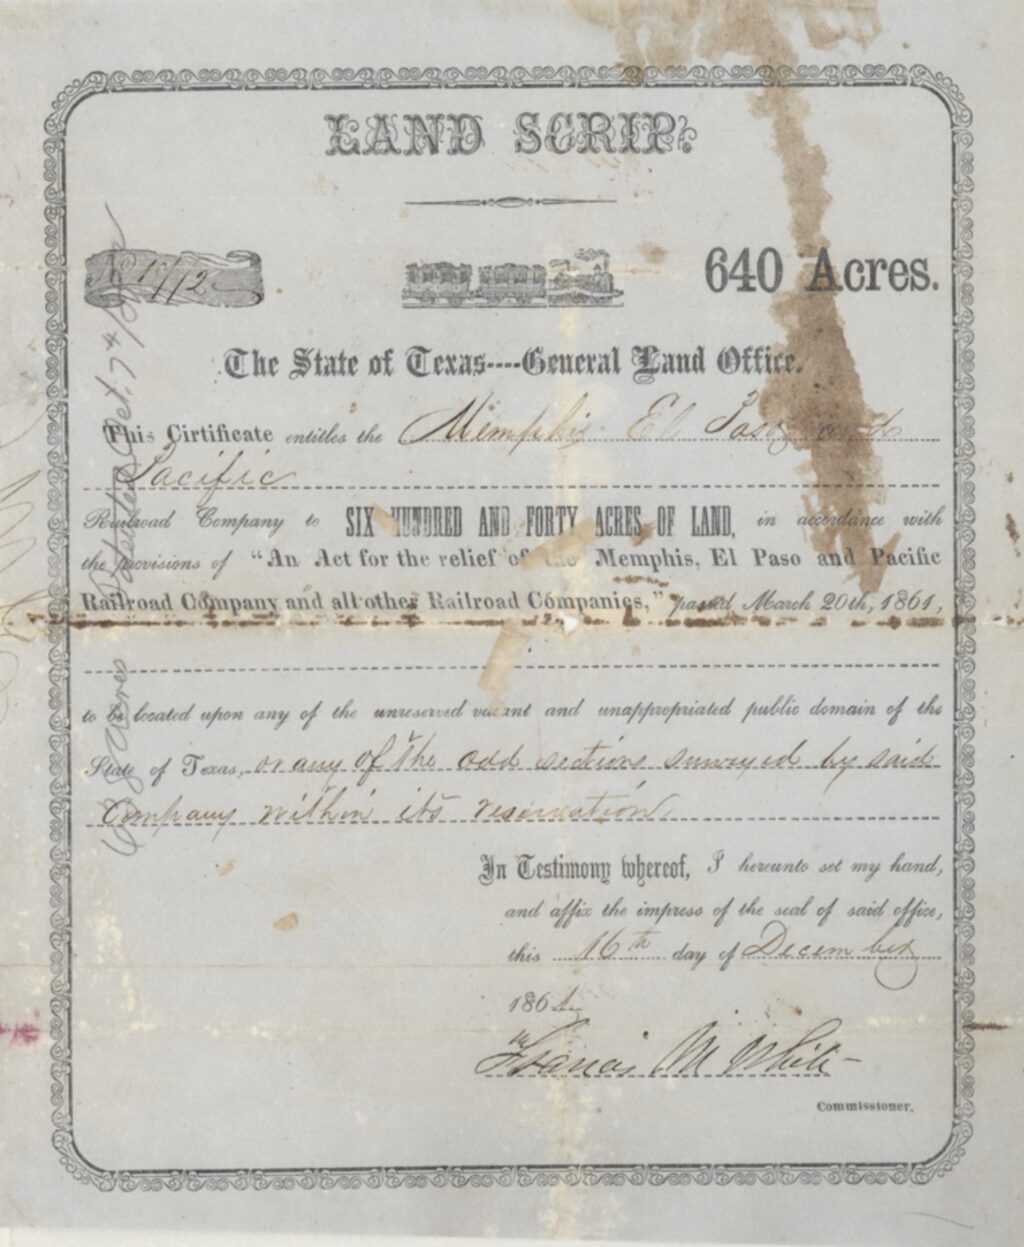 LAND SCRIP.
No 17/12
640 Acres.
The State of Texas----General Land Office.
This Cirtificate entitles the Memphis El Paso and
Pacific
Railroad Company to SIX HUNDRED AND FORTY ACRES OF LAND, in accordance with
the provisions of "An Act for the relief of the Memphis, El Paso and Pacific
Railroad Company and all other Railroad Companies," passed March 20th, 1861,
to be located upon any of the unreserved vacant and unappropriated public domain of the
State of Texas, or any of the odd sections surveyed by said
Company within its reservation.
In Testimony whereof, I hereunto set my hand,
and affix the impress of the seal of said office,
this 16th day of December
1861
Francis M White
Commissioner.
Acres